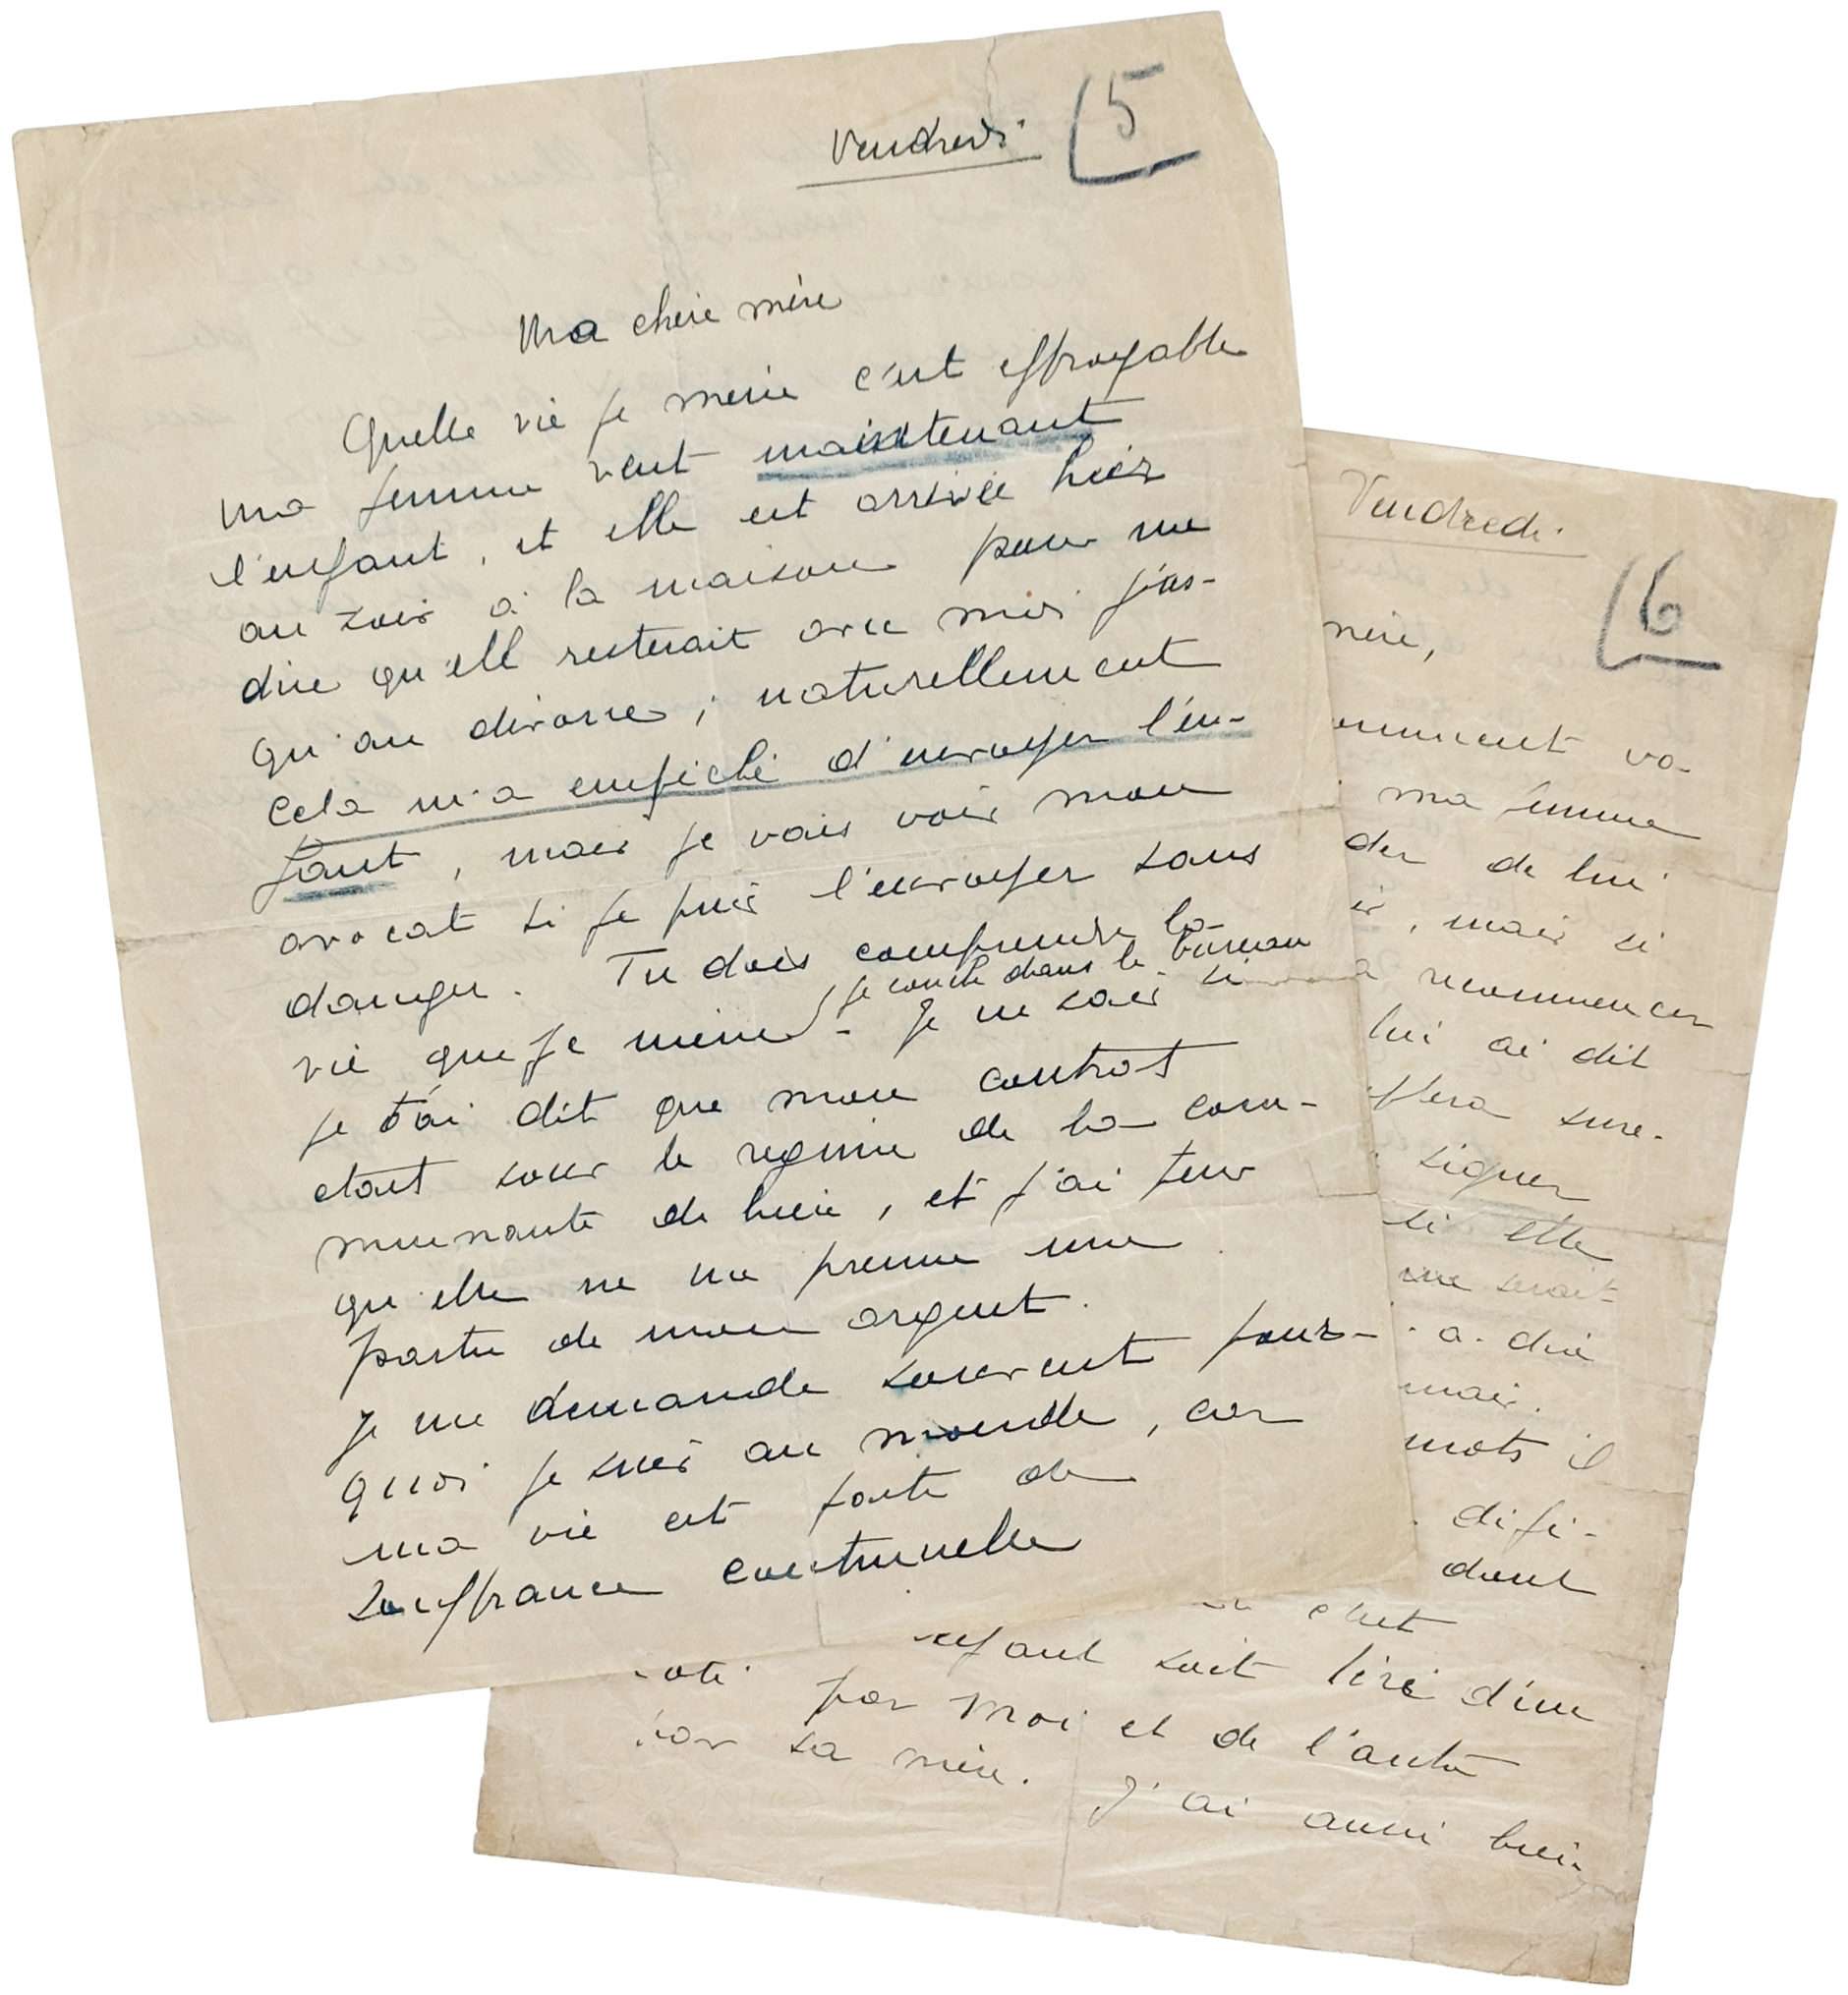 Vendredi
5
Ma chère mère
Quelle vie je mène c'est effroyable
ma femme veut maintenant
l'enfant, et elle est arrivée hier
au soir à la maison pour me
dire qu'ell resterait avec moi jus-
qu'au divorce ; naturellement
Cela m'a empêché d'envoyer l'en-
fant, mais je vais voir mon
avocat si je puis l'envoyer sans
danger. Tu dois comprendre la
je couche dans le bureau
vie que je mène - Je ne sais si
je t'ai dit que mon contrat
etait sous le regime de la com-
munauté de bien, et j'ai peur
qu'elle ne me prenne une
partie de mon argent.
Je me demande souvent pour-
quoi je suis au monde, car
ma vie est faite de
Souffrance continuelle
Vendredi
6
mère,
va-
ma femme
de lui
, mais si
recommencer
lui ai dit
sure-
signer
si elle
me serait
a dire
mais.
mots il
difi-
dont
soit tiré d'un
par moi et de l'autre
sa mère. J'ai aussi